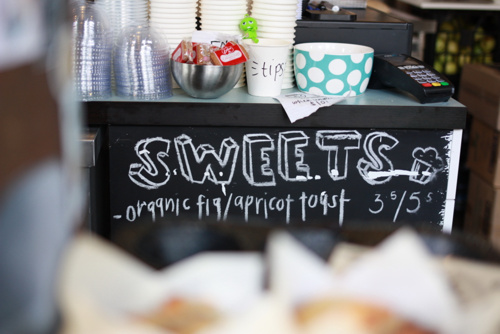 =tips
SWEETS
-organic fig/apricot toast 3⁵/5⁵